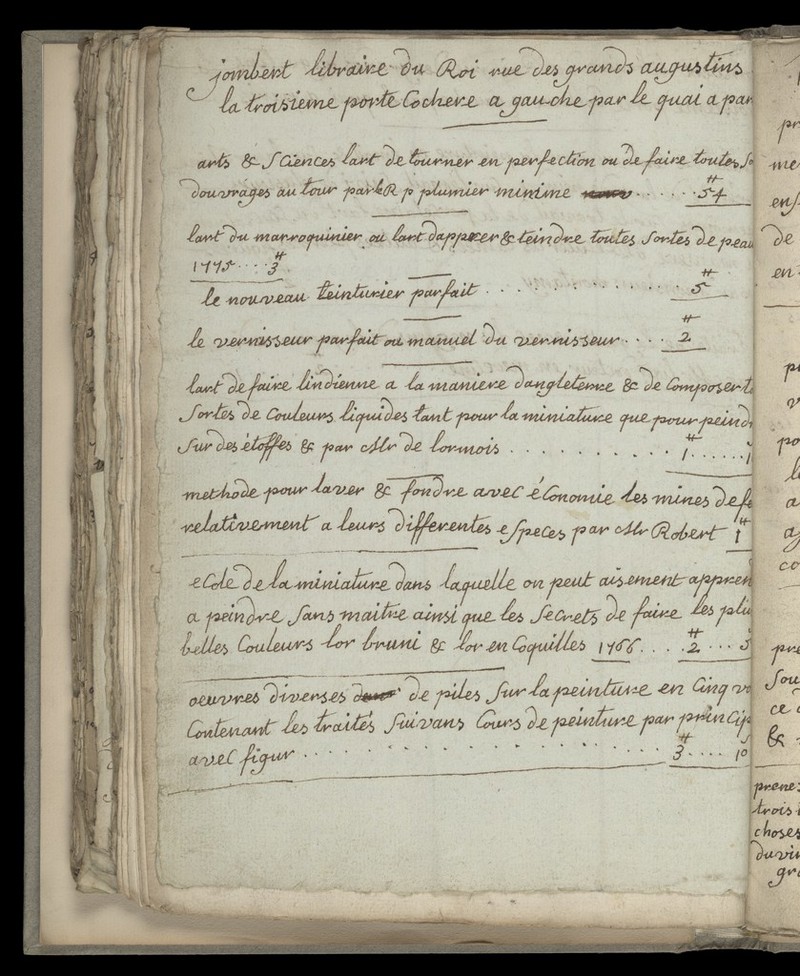 jombert libraire du Roi rue des grands augustins
la troisieme porte Cochere a gauche par le quai a par
arts & SCiences lart de tourner en perfection ou de faire toutes So
douvrages au tour par le R p plumier minime ...... 54 ₶
lart du marroquinier ou lart dapprer & teindre toutes Sortes de peau
1775 .... 3 ₶
le nouveau teinturier parfait ............ 5 ₶
le vernisseur parfait ou manuel du vernisseur .... 2 ₶
lart de faire lindienne a la maniere dangleterre & de Composer t
Sortes de Couleurs liquides tant pour la miniature que pour peind
Sur des étoffes & par Mr de lormois .......... 1 ₶ ...... 1
methode pour laver & fondre avec éConomie les mines de fe
relativement a leurs differentes eSpeces par Mr Robert 1 ₶
eCole de la miniature dans laquelle on peut aisement appren
a peindre Sans maitre ainsi que les Secrets de faire les plu
belles Couleurs lor bruni & lor en Coquilles 1766 .... 2 ₶ ... 5
oeuvres diverses de piles Sur la peinture en Cinq vo
Contenant les traités Suivans Cours de peinture par prinCip
avec figur ............ 3 ₶ ..... 10 S
pr
me
enS
de
en
pr
v
po
le
a
co
pre
Sou
ce
&
prene
trois
choses
du vin
gr